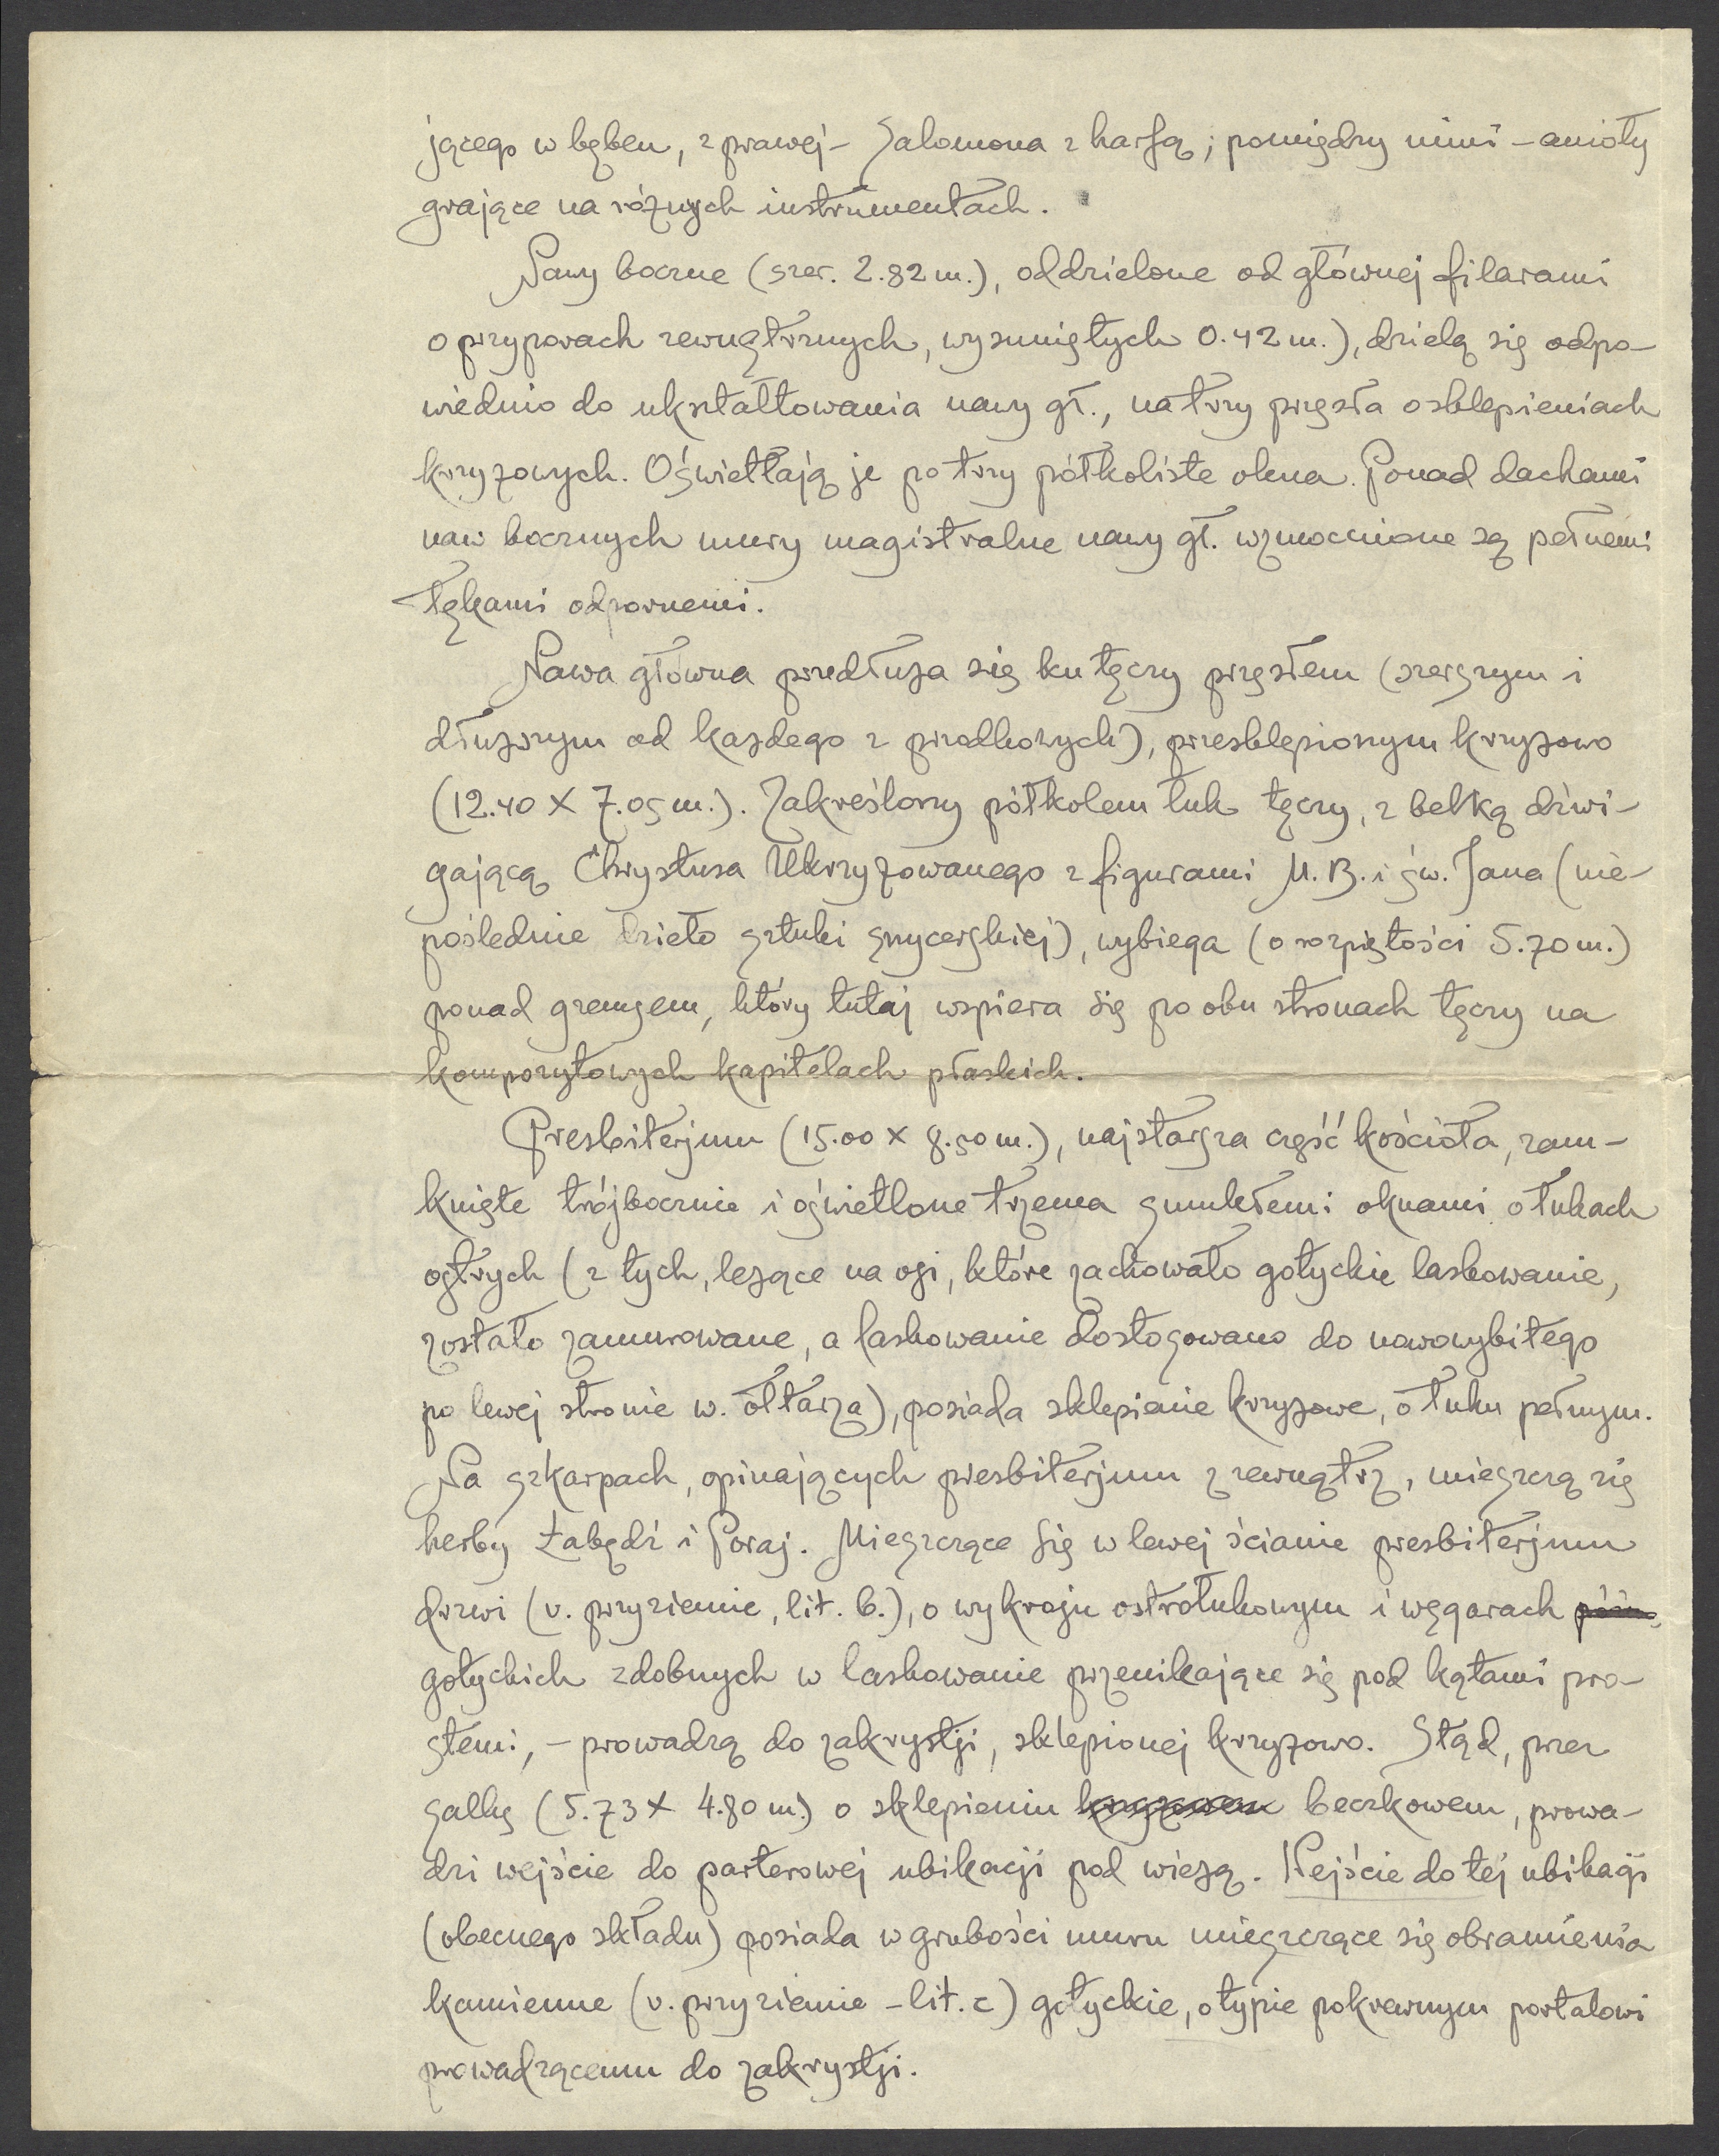 jącego w bęben, z prawej – Salomona z harfą; pomiędzy nimi – anioły
grające na różnych instrumentach.
Nawy boczne (szer. 2.82 m.), oddzielone od głównej filarami
o przyporach zewnętrznych, wysuniętych 0.42 m.), dzielą się odpo-
wiednio do ukształtowania nawy gł., na trzy przęsła o sklepieniach
krzyżowych. Oświetlają je po trzy półkoliste okna. Ponad dachami
naw bocznych mury magistralne nawy gł. wzmocnione są pełnemi
łękami odpornemi.
Nawa główna przedłuża się ku tęczy przęsłem (szerszym i
dłuższym od każdego z przodkowych), przesklepionym krzyżowo
(12.40 X 7.05 m.). Zakreślony półkolem łuk tęczy, z belką dźwi-
gającą Chrystusa Ukrzyżowanego z figurami M. B. i św. Jana (nie-
poślednie dzieło sztuki snycerskiej), wybiega (o rozpiętości 5.70 m.)
ponad gzemsem, który tutaj wspiera się po obu stronach tęczy na
kompozytowych kapitelach płaskich.
Presbiterjum (15.00 X 8.50 m.), najstarsza część kościoła, zam-
knięte trójbocznie i oświetlone trzema smukłemi oknami o łukach
ostrych (z tych, leżące na osi, które zachowało gotyckie laskowanie,
zostało zamurowane, a laskowanie dostosowano do nowowybitego
po lewej stronie w. ołtarza), posiada sklepienie krzyżowe, o łuku pełnym.
Na szkarpach, opinających presbiterjum z zewnątrz, mieszczą się
herby Łabędź i Poraj. Mieszczące się w lewej ścianie presbiterjum
drzwi (v. przyziemie, lit. b.), o wykroju ostrołukowym i węgarach późno
gotyckich zdobnych w laskowanie przenikające się pod kątami pro-
stemi, – prowadzą do zakrystji, sklepionej krzyżowo. Stąd, przez
salkę (5.73 X 4.80 m.) o sklepieniu krzyżowem beczkowem, prowa-
dzi wejście do parterowej ubikacji pod wieżą. Wejście do tej ubikacji
(obecnego składu) posiada w grubości muru mieszczące się obramienia
kamienne (v. przyziemie – lit. c) gotyckie, o typie pokrewnym portalowi
prowadzącemu do zakrystji.